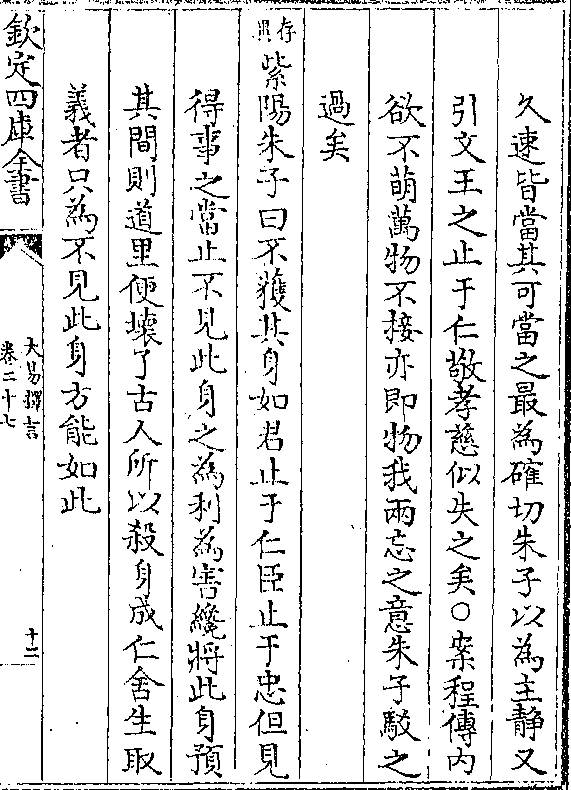 久速皆當其可當之最為確切朱子以為主靜又
引文王之止于仁敬孝慈似失之矣○案程傳内
欲不萌萬物不接亦即物我兩忘之意朱子駁之
過矣
存照
紫陽朱子曰不獲其身如君止于仁臣止于忠但見
得事之當止不見此身之為利為害纔將此身預
其間則道里便壞了古人所以殺身成仁舍生取
義者只為不見此身方能如此
欽定四庫全書
大易擇言
卷二十七
十二